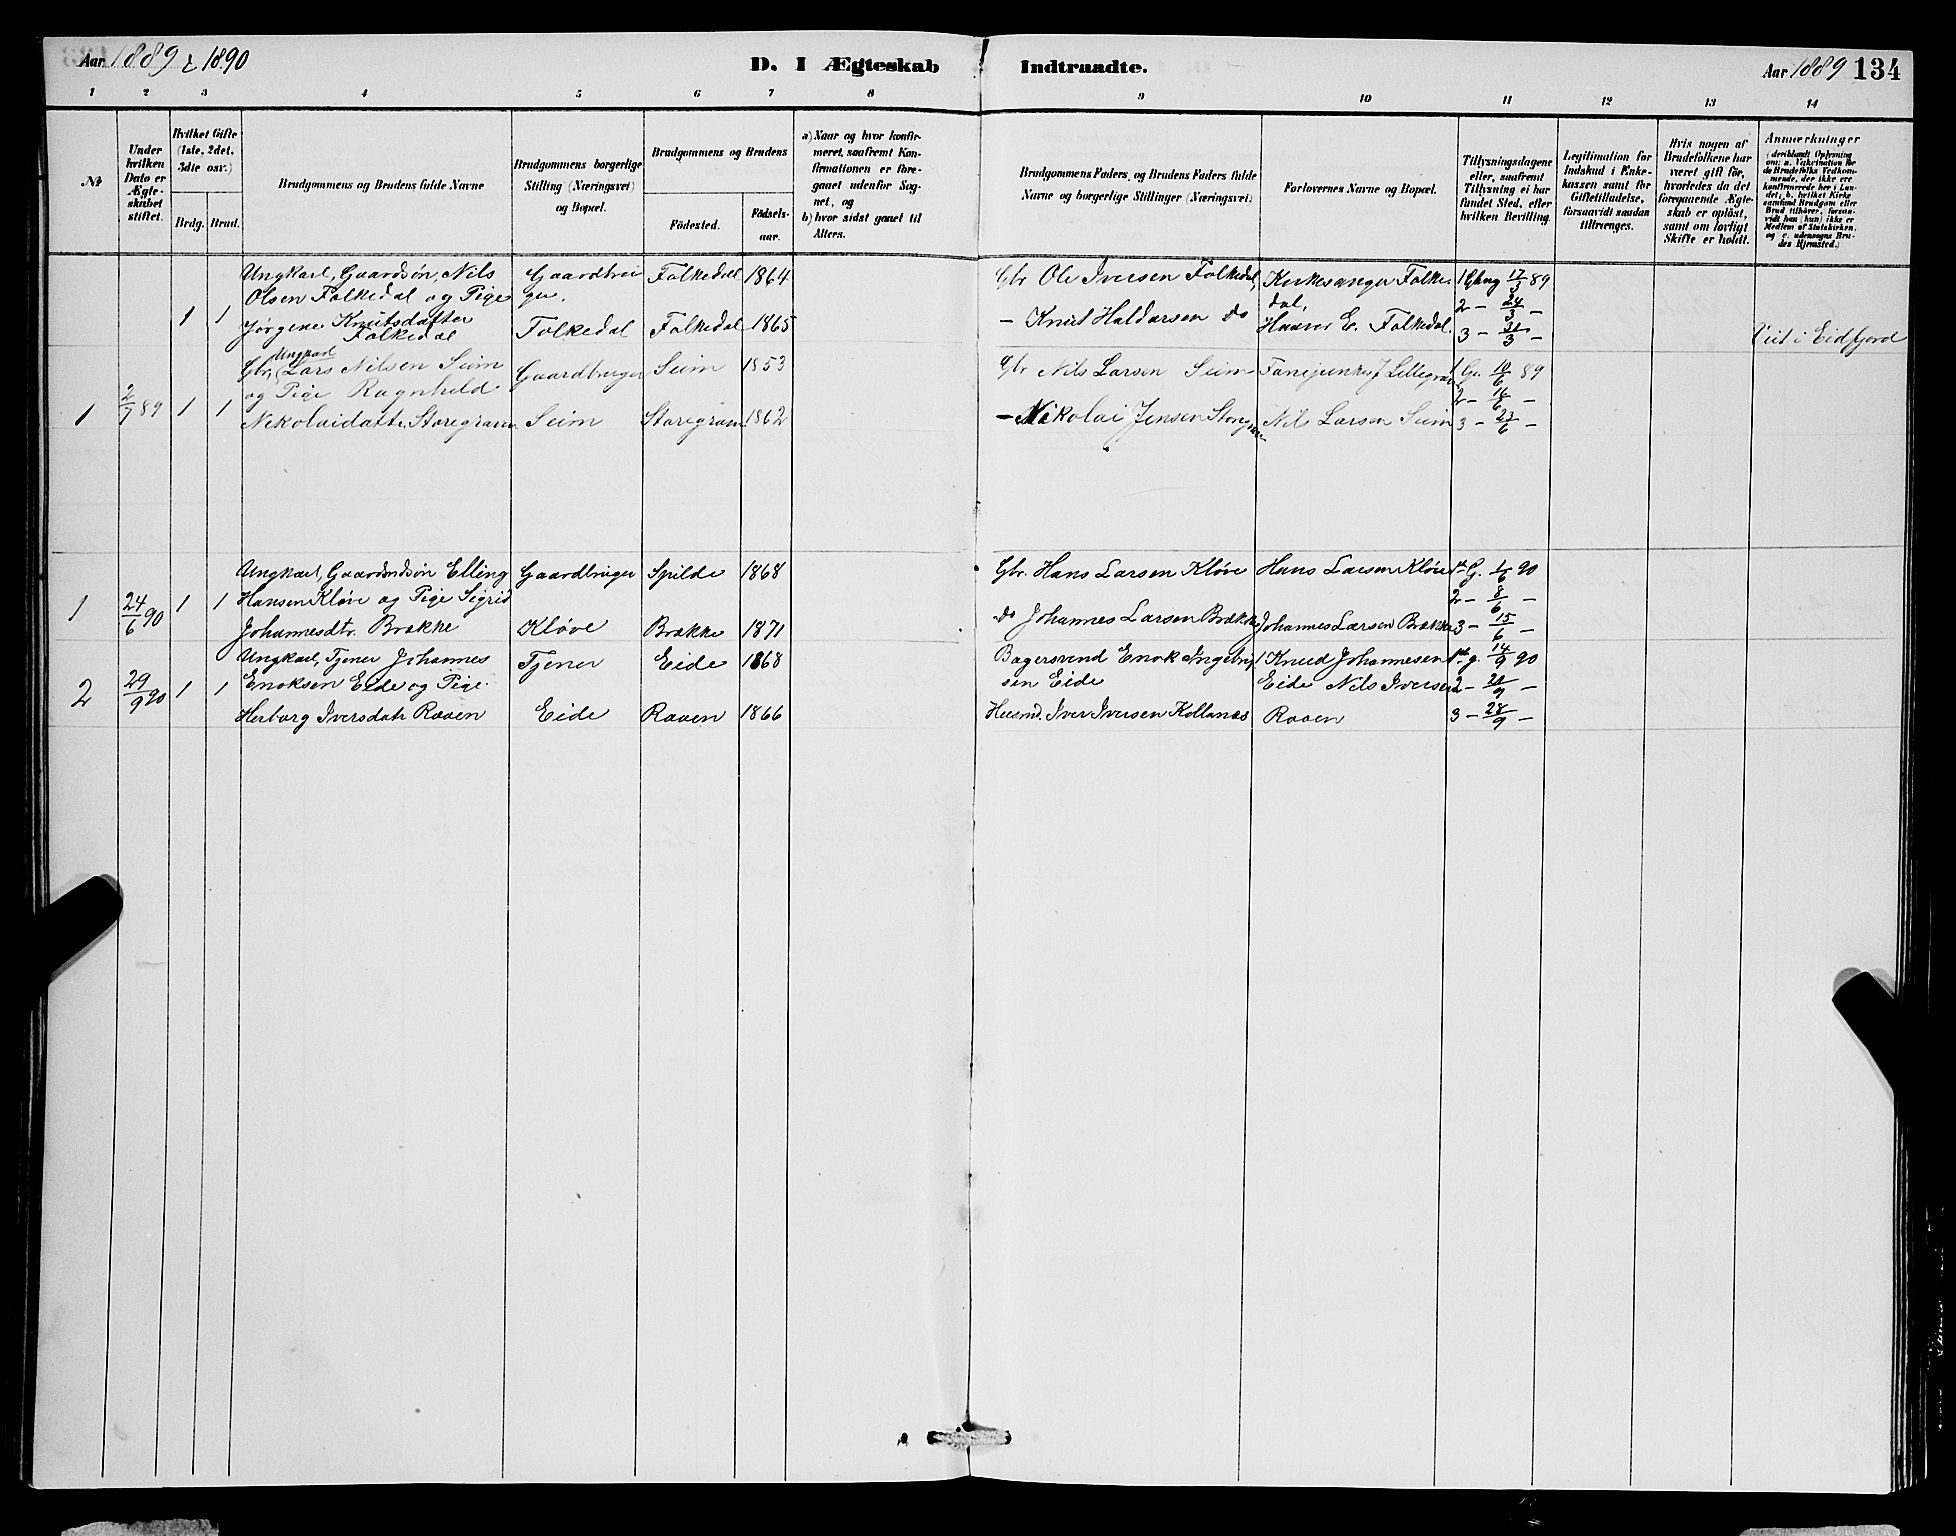 Aar 1889 & 1890
D. I Ægteskab Indtraadte.
Aar 1889 134
1 2 3 4 5 6 7 8 9 10 11 12 13 14
№
Under hvilken Dato er Ægteskabet stiftet.
Hvilket Gifte (1ste, 2det, 3die osv.)
Brdg. Brud.
Brudgommens og Brudens fulde Navne
Brudgommens borgerlige Stilling (Næringsvei) og Bopæl.
Brudgommens og Brudens
Födested.
Födselsaar.
a) Naar og hvor konfirmeret, saafremt Konfirmationen er foregaaet udenfor Sognet, og
b) hvor sidst gaaet til Alters.
Brudgommens Faders, og Brudens Faders fulde Navne og borgerlige Stillinger (Næringsvei)
Forlovernes Navne og Bopæl.
Tillysningsdagene eller, saafremt Tillysning ei har fundet Sted, efter hvilken Bevilling.
Legitimation for Indskud i Enkekassen samt for Giftetilladelse, forsaavidt saadan tiltrænges.
Hvis nogen af Brudefolkene har været gift før, hvorledes da det foregaaende Ægteskab er opløst, samt om lovligt Skifte er holdt.
Anmærkninger
(deriblandt Oplysning om: a. Vakcination for de Brudefolks Vedkommende, der ikke ere konfirmerede her i Landet; b. hvilket Kirkesamfund Brudgom eller Brud tilhører, forsaavidt han (hun) ikke er Medlem af Statskirken, og c. udensogns Brudes Hjemsted.)
Ungkarl, Gaardsøn, Nils Gaardbru Folkedal 1864 Gbr Ole Iversen Folkedal, Kirkesanger Folke 1 Gang 17/3 89
Olsen Folkedal og Pige ger. dal, 2 - 24/3 -
1 1 Jørgene Knutsdatter Folkedal Folkedal 1865 - Knut Haldorsen do Haaver E. Folkedal. 3 - 31/3 - Viet i Eidfjord
Folkedal
Ungkarl
Gbr, Lars Nilsen Seim Gaardbruger Seim 1853 Gbr Nils Larsen Seim Fanejunker J Lillegraven 1 G. 10/6 89
og Pige Ragnhild 2 - 16/6 -
1 2/7 89 1 1 Nikolaidatter Storegraven Seim Storegraven 1862 - Nikolai Jensen Storegraven Nils Larsen Seim 3 - 23/6 -
Ungkarl, Gaardmdsøn Elling Gaardbruger Spilde 1868 Gbr. Hans Larsen Kløve Hans Larsen Kløve 1st G. 1/6 90
1 24/6 90 1 1 Hansen Kløve og Pige Sigrid 2 - 8/6 -
Johannesdtr. Brække Kløve Brække 1871 do Johannes Larsen Brække Johannes Larsen Brække 3 - 15/6 -
Ungkarl, Tjener Johannes Tjener Eide 1868 Bagersvend Enok Ingebrigt Knud Johannesen 1st g. 14/9 90
2 29/9 90 1 1 Enoksen Eide og Pige sen Eide Eide Nils Iversen 2 - 21/9 -
Herborg Iversdatr Raaen Eide Raaen 1866 Husmd. Iver Iversen Kollanæs Raaen 3 - 28/9 -